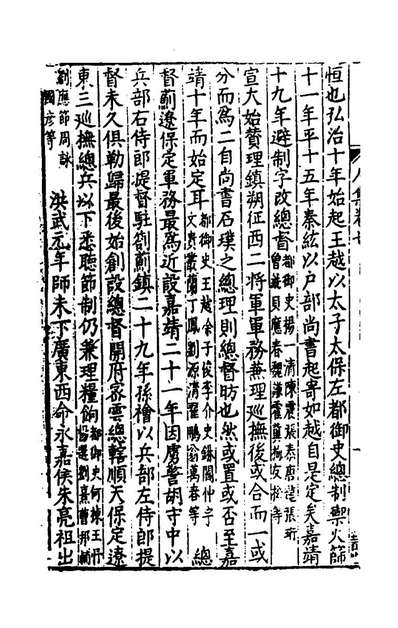 恒也弘治十年始起王越以太子太保左都御史總制禦火篩
十一年平十五年秦紘以戶部尚書起寄如越自是定矣嘉靖
十九年避制字改總督
宣大始贊理鎮朔征西二將軍軍務兼理巡撫後或合而一或
分而爲二自尚書石璞之總理則總督昉也然或置或否至嘉
靖十年而始定耳 總
督薊遼保定軍務最爲近設嘉靖二十一年因虜警胡守中以
兵部右侍郎提督駐劄薊鎮二十九年孫禬以兵部左侍郎提
督未久俱勒歸最後始創設總督開府密雲總轄順天保定遼
東三巡撫總兵以下悉聽節制仍兼理糧餉
劉應節周詠 洪武元年師未下廣東西命永嘉侯朱亮祖出